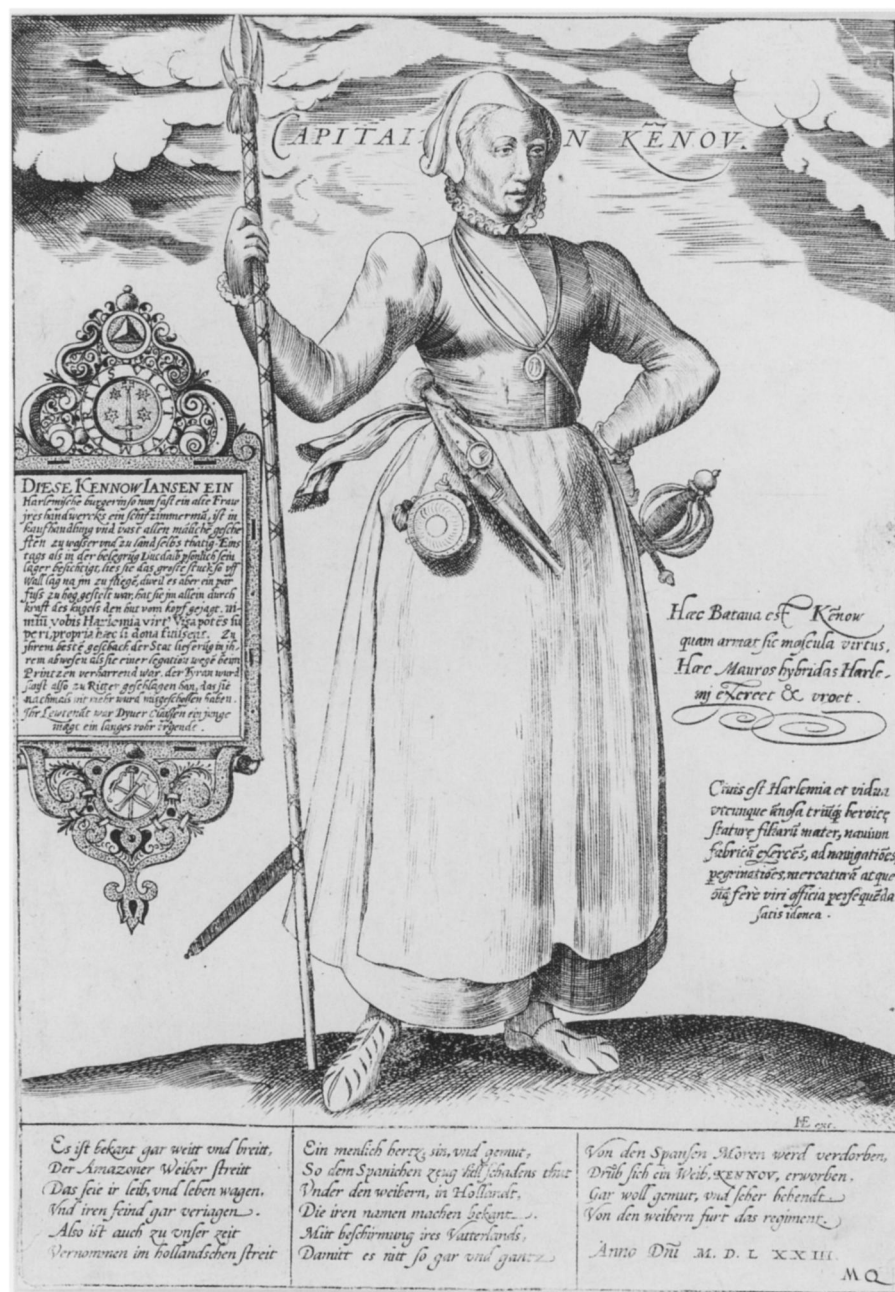 CAPITAIN KĒNOV.
DIESE KENNOW IANSEN EIN
Harlemische burgerin so nun fast ein alte Fraw
jres handwercks ein schifzimmermā, ist in
kaufhandlung vnd vast allen māliche gesche
ften zu wasser vnd zu land selbs thatig. Eins
tags als in der belegrūg
lager besichtigt, lies sie das groste stuck so vff
wall lag na jm zu fliegē, dweil es aber ein par
fuss zu hog gestelt war, hat sie jm allein durch
kraft des kugels den hut vom kopf gejagt.
vobis Harlemia virt9
peri, propria hæc si dona fuissent. Zu
jhrem beste geschach der Stat lieferūg in jh,
rem abwesen als sie einer legation wege beim
Printzen verharrend war. der Tyran wurd
sonst also zu Ritter geschlagen han, das sie
nachmals nit mehr wurd ausgeschossen haben.
Ihr Leutendt war ein junge
magt ein langes rohr
Hæc Bataua est Kēnow
quam armat sic mascula virtus,
Hæc Mauros hybridas Harle-
mj exercet & vrget.
Ciuis est Harlemia et vidua
vtcunque ānosa triūq; heroicę
staturę filiarū mater, nauium
fabricā exercēs, ad nauigatiōes,
pegrinatiōes, mercaturā atque
oīa ferè viri officia persequēda
satis idonea.
HE exc.
Es ist bekant gar weitt vnd breitt,
Der Amazoner Weiber streitt
Das seie ir leib, vnd leben wagen,
Vnd iren feind gar veriagen.
Also ist auch zu vnser zeit
Vernommen im hollandschen streit
Ein menlich hertz, sin, vnd gemut,
So dem Spanichen zeug viell schadens thut
Vnder den weibern, in Hollandt,
Die iren namen machen bekant.
Mitt beschirmung ires Vatterlands,
Damitt es nitt so gar vnd gantz
Von den Spansen Moren werd verdorben,
Drūb sich ein Weib, KENNOV, erworben.
Gar woll gemut, vnd seher behendt
Von den weibern furt das regiment.
Anno Dñi M. D. L XXIII.
MQ